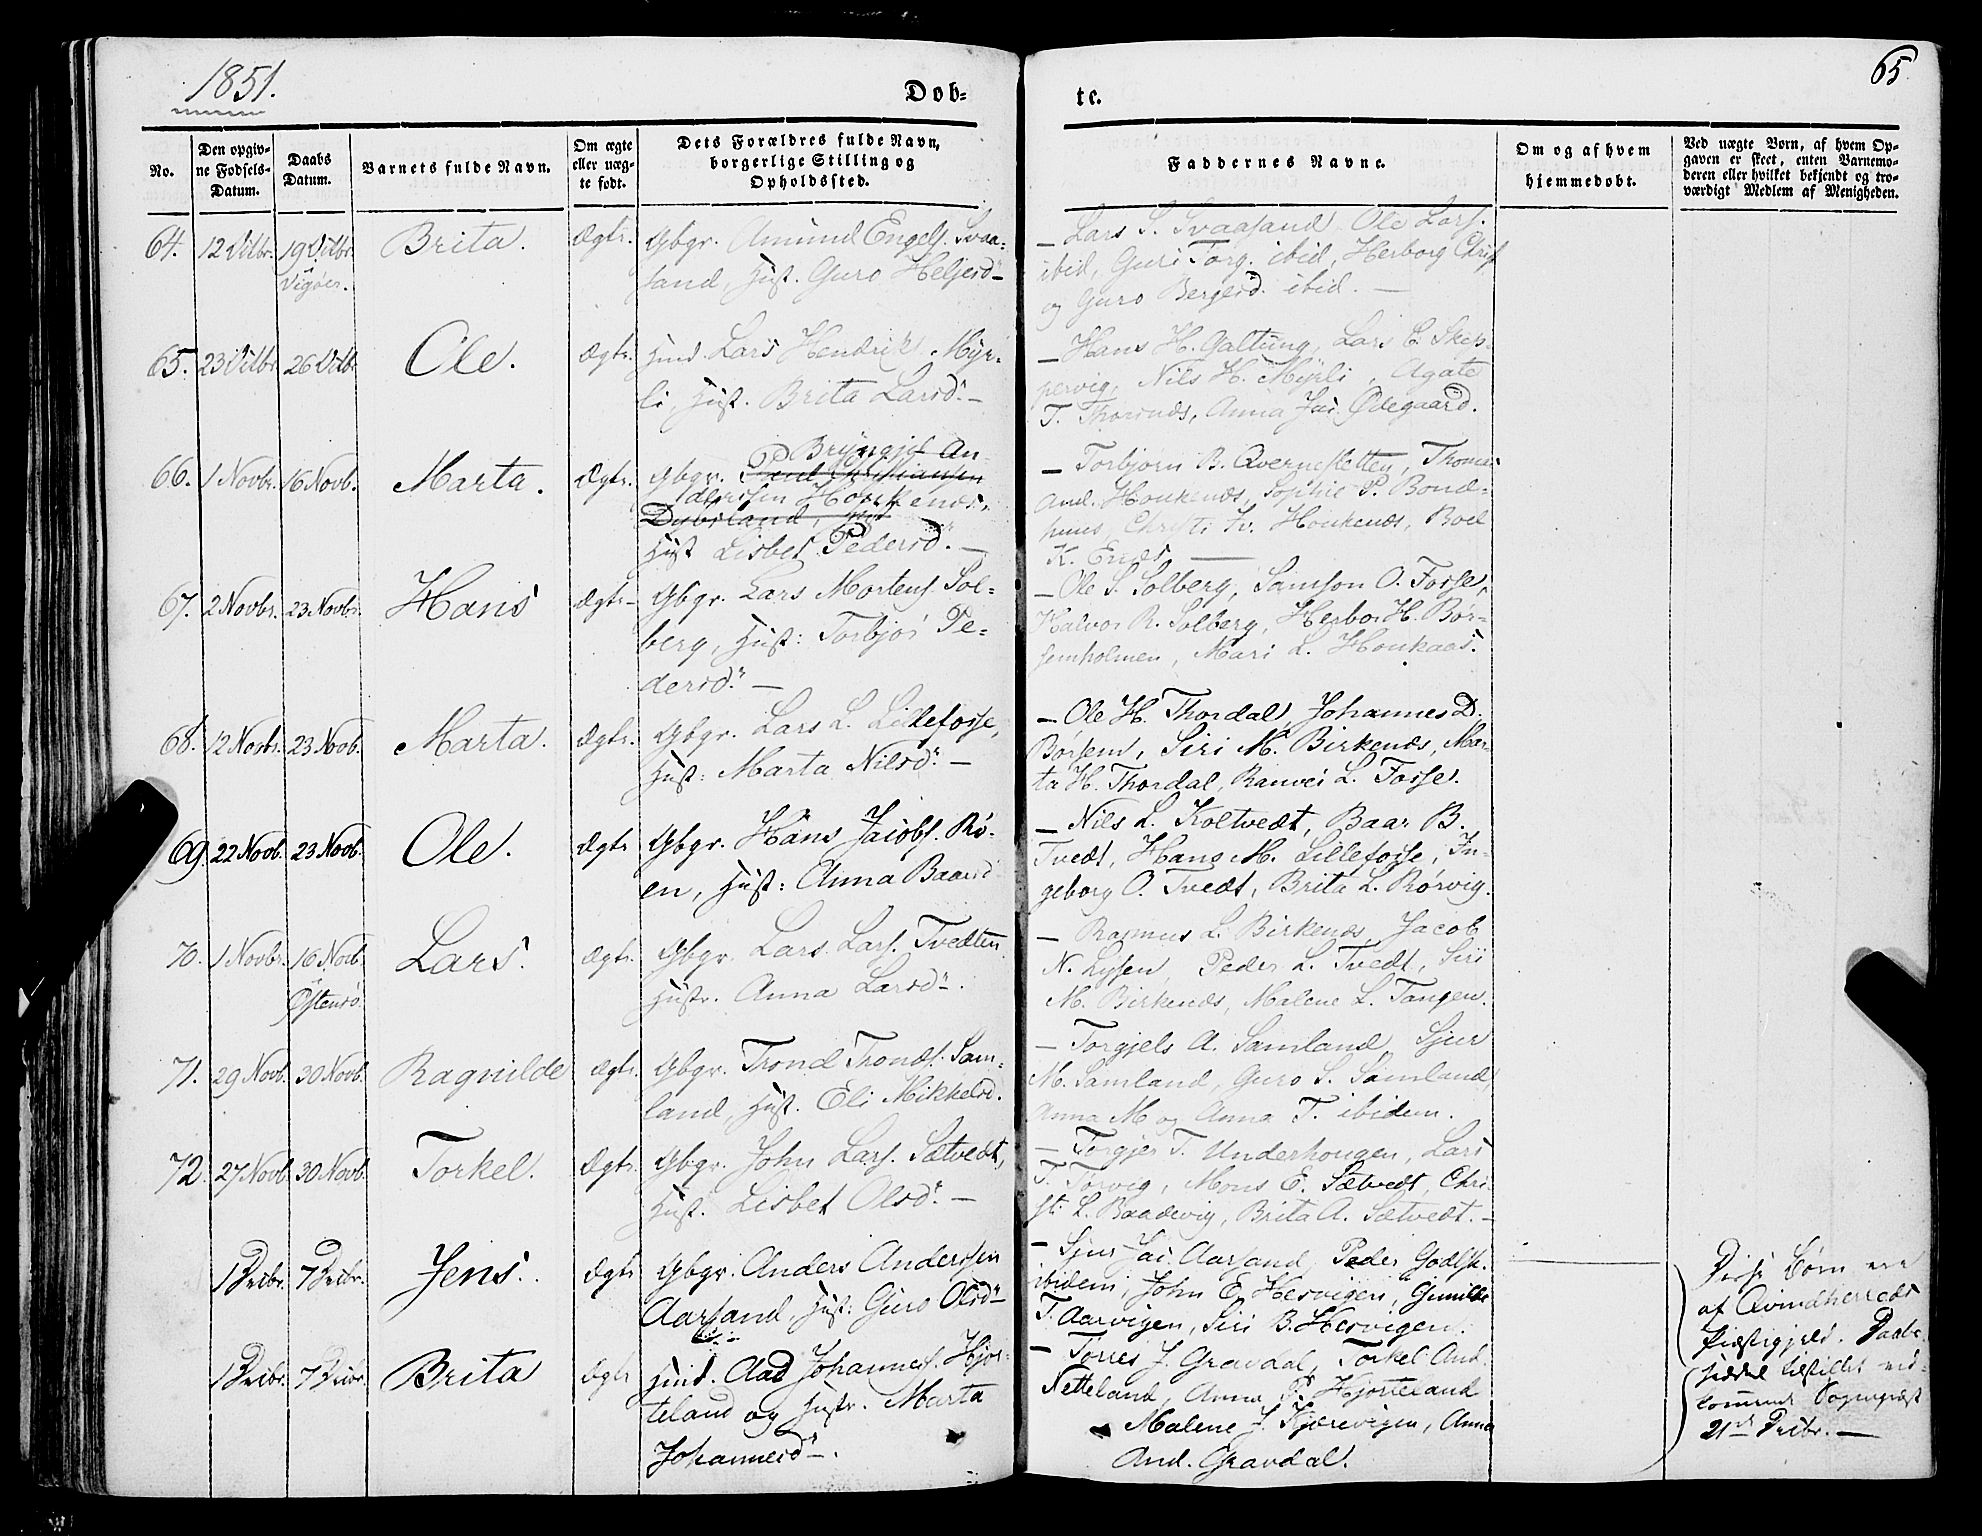 1851.
Dob-
te.
65
No.
Den opgiv-
ne Fødsels-
Datum.
Daabs
Datum.
Barnets fulde Navn.
Om ægte
eller uæg-
te født.
Dets Forældres fulde Navn,
borgerlige Stilling og
Opholdssted.
Faddernes Navne.
Om og af hvem
hjemmedobt.
Ved uægte Born, af hvem Op-
gaven er skeet, enten Barnemo-
deren eller hvilket bekjendt og tro-
værdigt Medlem af Menigheden.
64. 12 Vilbr. 19 Vilbr. Brita. Ægte. Gbgr. Amund Engels. Svaa-
Vigöer.
sand, Hust. Guro Heljesd. —
— Lars S. Svaasand, Ole Lars.
ibid, Guri Torg. ibid, Herborg Christ
og Guro Bergesd. ibid. —
65. 23 Vilbr. 26 Vilbr Ole. Ægte. Huusd. Lars Hendrik. Myr-
li, Hust. Brita Larsd. —
— Hans H. Galtung, Lars C. Skip-
pervig, Nils H. Myrli, Agate
T. Thorsnæs, Anna Jac. Ødegaard.
66. 1 Novbr. 16 Novb. Marta. Ægte. Gbgr. Bryngjel An-
dersen
Hust Lisbet Pedersd. —
— Torbjorn B. Qvernesletten, Thomas
And. Houkenæs, Sophie P. Bond-
huus Christi Iv. Houkenæs, Boel
K. Enæs —
67. 2 Novbr. 23 Novbr. Hans Ægte — Gbgr. Lars Mortens. Sol-
berg, Hust: Torbjor Pe-
dersd. —
— Ole S. Solberg, Samson O. Fosse,
Halvor R. Solberg, Herbor H. Bør-
semholmen, Mari L. Houkaas.
68. 12 Novbr. 23 Novb. Marta. Ægte. Gbgr. Lars L. Lillefosse,
Hust: Marta Nilsd. —
— Ole H. Thordal, Johannes D.
Børsem, Siri M. Birkenæs, Mar-
ta H. Thordal, Ranvei L. Fosse.
69. 22 Novb. 23 Novb. Ole. Ægte Gbgr. Hans Jacobs. Rö-
en, Hust: Anna Baarsd
— Nils L. Koltvedt, Baar B.
Tvedt, Hans M. Lillefosse, In-
geborg O. Tvedt, Brita L. Rörvig.
70. 1 Novbr. 16 Novb. Lars. Ægte. Gbgr. Lars Lars. Tvedten
Østensö. Hustr. Anna Larsd.
— Rasmus L. Birkenæs, Jacob
N. Lysen, Peder L. Tvedt, Siri
M. Birkenæs, Malene L. Tangen.
71. 29 Novb. 30 Novb. Ragnilde Ægte. Gbgr. Trond Tronds. Sam-
land, Hust. Eli Mikkelsd.
— Torgjels A. Samland, Sjur
M. Samland, Guro S. Samland,
Anna M og Anna T. ibidem.
72. 27 Novb. 30 Novb. Torkel. Ægte. Gbgr. John Lars. Sætvedt,
Hust. Lisbet Olsd. —
— Torgjer T. Underhougen, Lars
T. Torvig, Mons E. Sætvedt, Chri-
sti L. Baadevig, Brita A. Sætvedt. —
1 Decbr. 7 Decbr. Jens. Ægte Gbgr. Anders Anderssen
Aarsand, Hust: Guro Olsd —
— Sjur Jac. Aarsand, Peder Godtsk.
ibidem, John E. Hesvigen, Gunilde
T. Aarvigen, Siri B. Hesvigen.
1 Decbr. 7 Decbr. Brita Ægte Huusd. Aad Johannes. Hjor-
teland og Hustr. Marta
Johannesd. —
— Torres J. Gravdal, Torkel And.
Netteland, Anna P. Hjorteland
Malene J. Kjærevigen, Anna
And. Gravdal.
Disse Børn ere
af Qvindherreds
Præstegjeld. Daabs-
seddel tilstillet ved-
kommende Sognepræst
21de Decbr. —